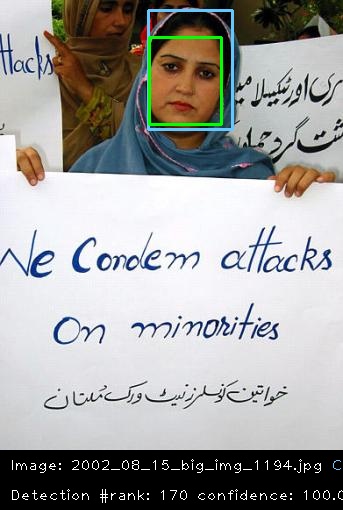 ttacks
ری اور ٹیکسیلا میں
We Condem attacks
On minorities
خواتین کونسلرز نیٹ ورک مُلتان
Image: 2002_08_15_big_img_1194.jpg C
Detection #rank: 170 confidence: 100.0